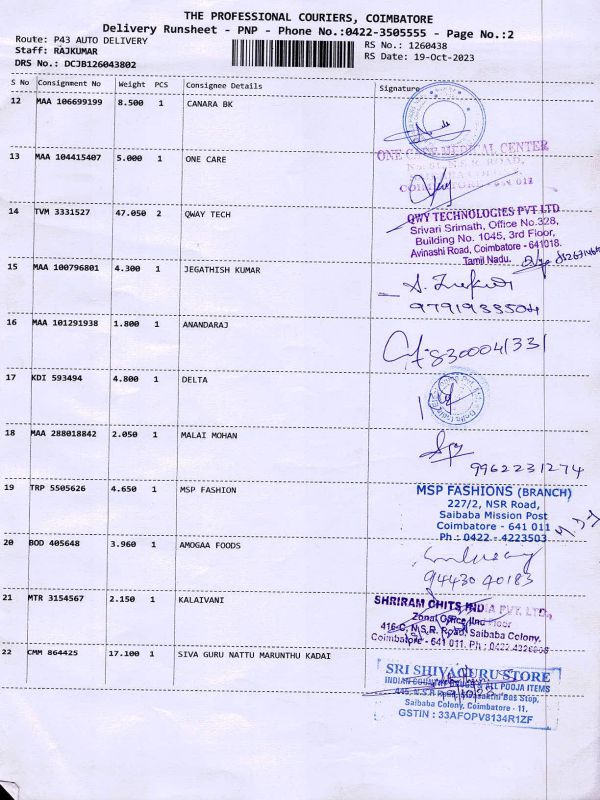 THE PROFESSIONAL COURIERS, COIMBATORE
Delivery Runsheet - PNP - Phone No.:0422-3505555 - Page No.:2
Route: P43 AUTO DELIVERY
RS No.: 1260438
Staff: RAJKUMAR
RS Date: 19-Oct-2023
DRS No.: DCJB126043802
S No Consignment No Weight PCS Consignee Details Signature
12 MAA 106699199 8.500 1 CANARA BK
ONE CARE MEDICAL CENTER
13 MAA 104415407 5.000 1 ONE CARE
14 TVM 3331527 47.050 2 QWAY TECH
QWY TECHNOLOGIES PVT LTD
Srivari Srimath, Office No.328,
Building No. 1045, 3rd Floor,
Avinashi Road, Coimbatore - 641018.
Tamil Nadu.
15 MAA 100796801 4.300 1 JEGATHISH KUMAR
9791933504
16 MAA 101291938 1.800 1 ANANDARAJ
8300041331
17 KDI 593494 4.800 1 DELTA
18 MAA 288018842 2.050 1 MALAI MOHAN
9962231274
19 TRP 5505626 4.650 1 MSP FASHION
MSP FASHIONS (BRANCH)
227/2, NSR Road,
Saibaba Mission Post
Coimbatore - 641 011
Ph : 0422 - 4223503
20 BOD 405648 3.960 1 AMOGAA FOODS
94430 90183
21 MTR 3154567 2.150 1 KALAIVANI
SHRIRAM CHITS INDIA PVT. LTD.,
Zonal Office IInd Floor
416-C, N.S.R. Road, Saibaba Colony,
Coimbatore - 641 011. Ph :
22 CMM 864425 17.100 1 SIVA GURU NATTU MARUNTHU KADAI
SRI SHIVAGURU STORE
INDIAN COUNTRY DRUGS & ALL POOJA ITEMS
445, N.S.R Road, Bus Stop,
Saibaba Colony, Coimbatore - 11.
GSTIN : 33AFOPV8134R1ZF